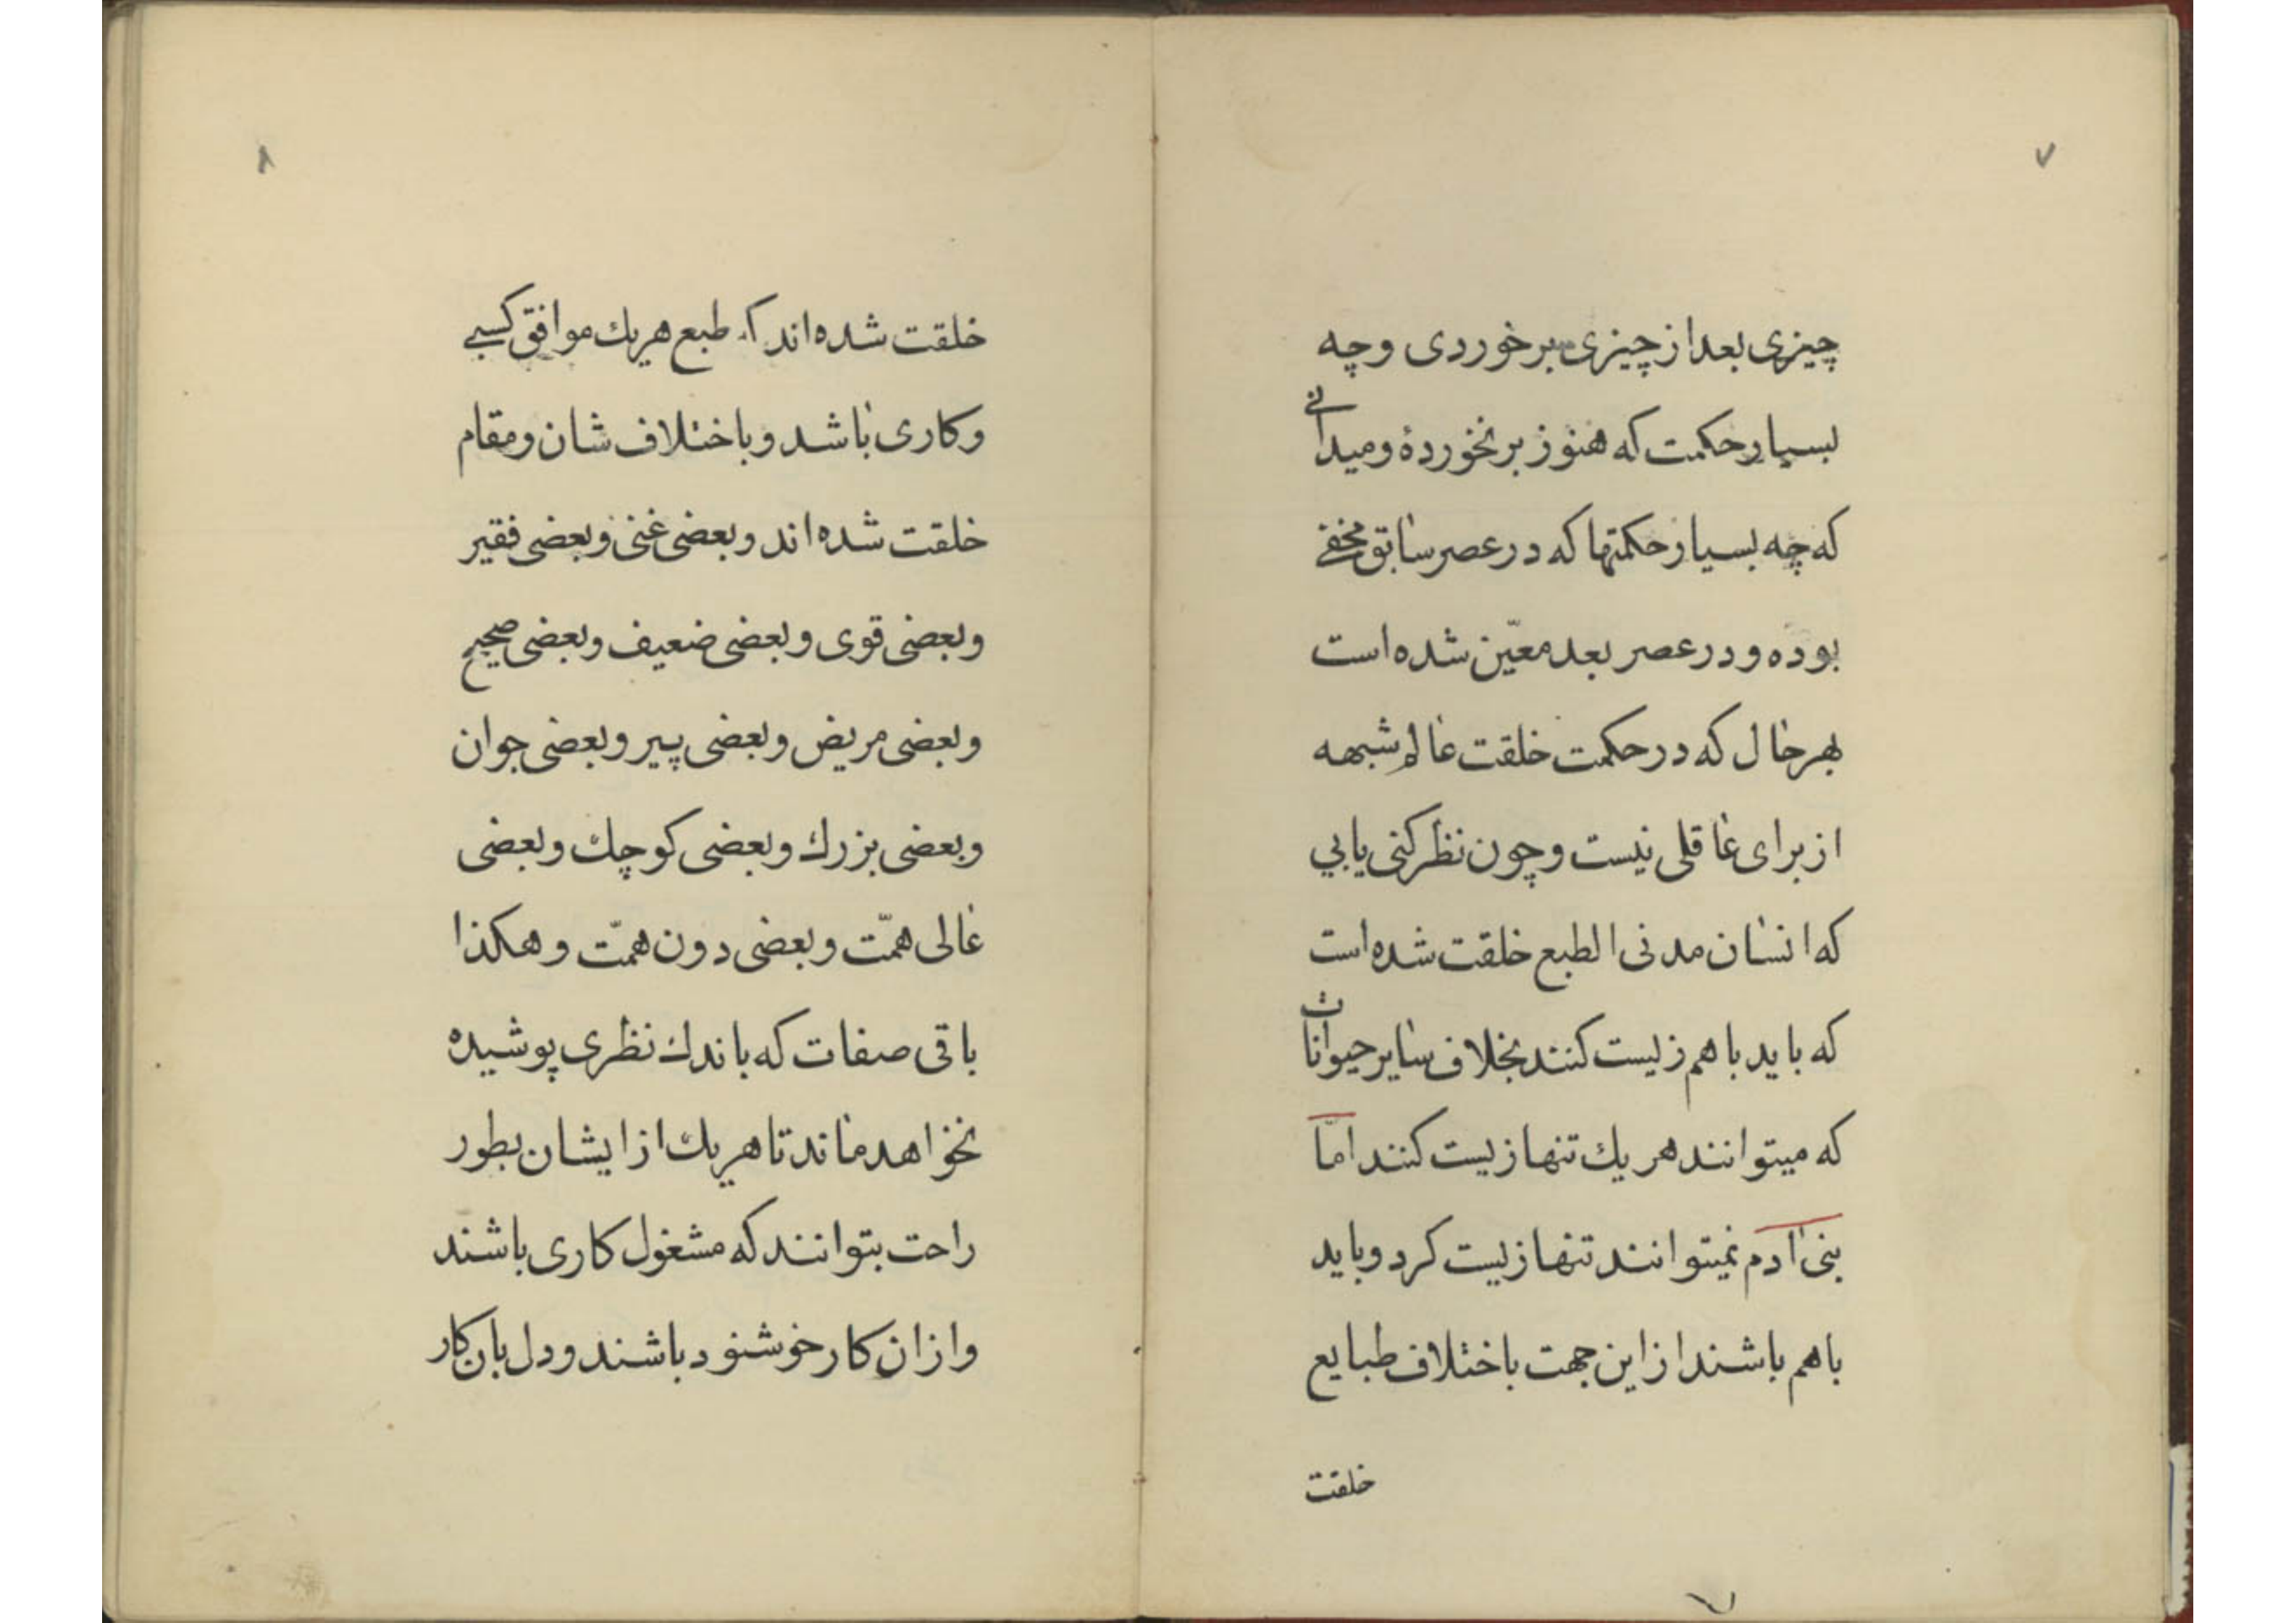 ۷
چیزی بعد از چیزی برخوردی وچه
بسیار حکمت که هنوز برنخوردهٔ ومیدانی
که چه بسیار حکمتها که در عصر سابق مخفی
بوده و در عصر بعد معیّن شده است
بهر حال که در حکمت خلقت عالم شبهه
از برای عاقلی نیست و چون نظر کنی یابی
که انسان مدنی الطبع خلقت شده است
که باید با هم زیست کنند بخلاف سایر حیوانات
که میتوانند هر یك تنها زیست کنند امّا
بنی آدم نمیتوانند تنها زیست کرد و باید
باهم باشند از این جهت باختلاف طبایع
خلقت
۷
۸
خلقت شده اند که طبع هریك موافق کسبی
وکاری باشد وباختلاف شان ومقام
خلقت شده اند وبعضی غنی وبعضی فقیر
وبعضی قوی وبعضی ضعیف وبعضی صحیح
وبعضی مریض وبعضی پیر وبعضی جوان
وبعضی بزرك وبعضی کوچك وبعضی
عالی همّت وبعضی دون همّت وهکذا
باقی صفات که باندك نظری پوشیده
نخواهد ماند تا هریك از ایشان بطور
راحت بتوانند که مشغول کاری باشند
واز ان کار خوشنود باشند ودل بان کار